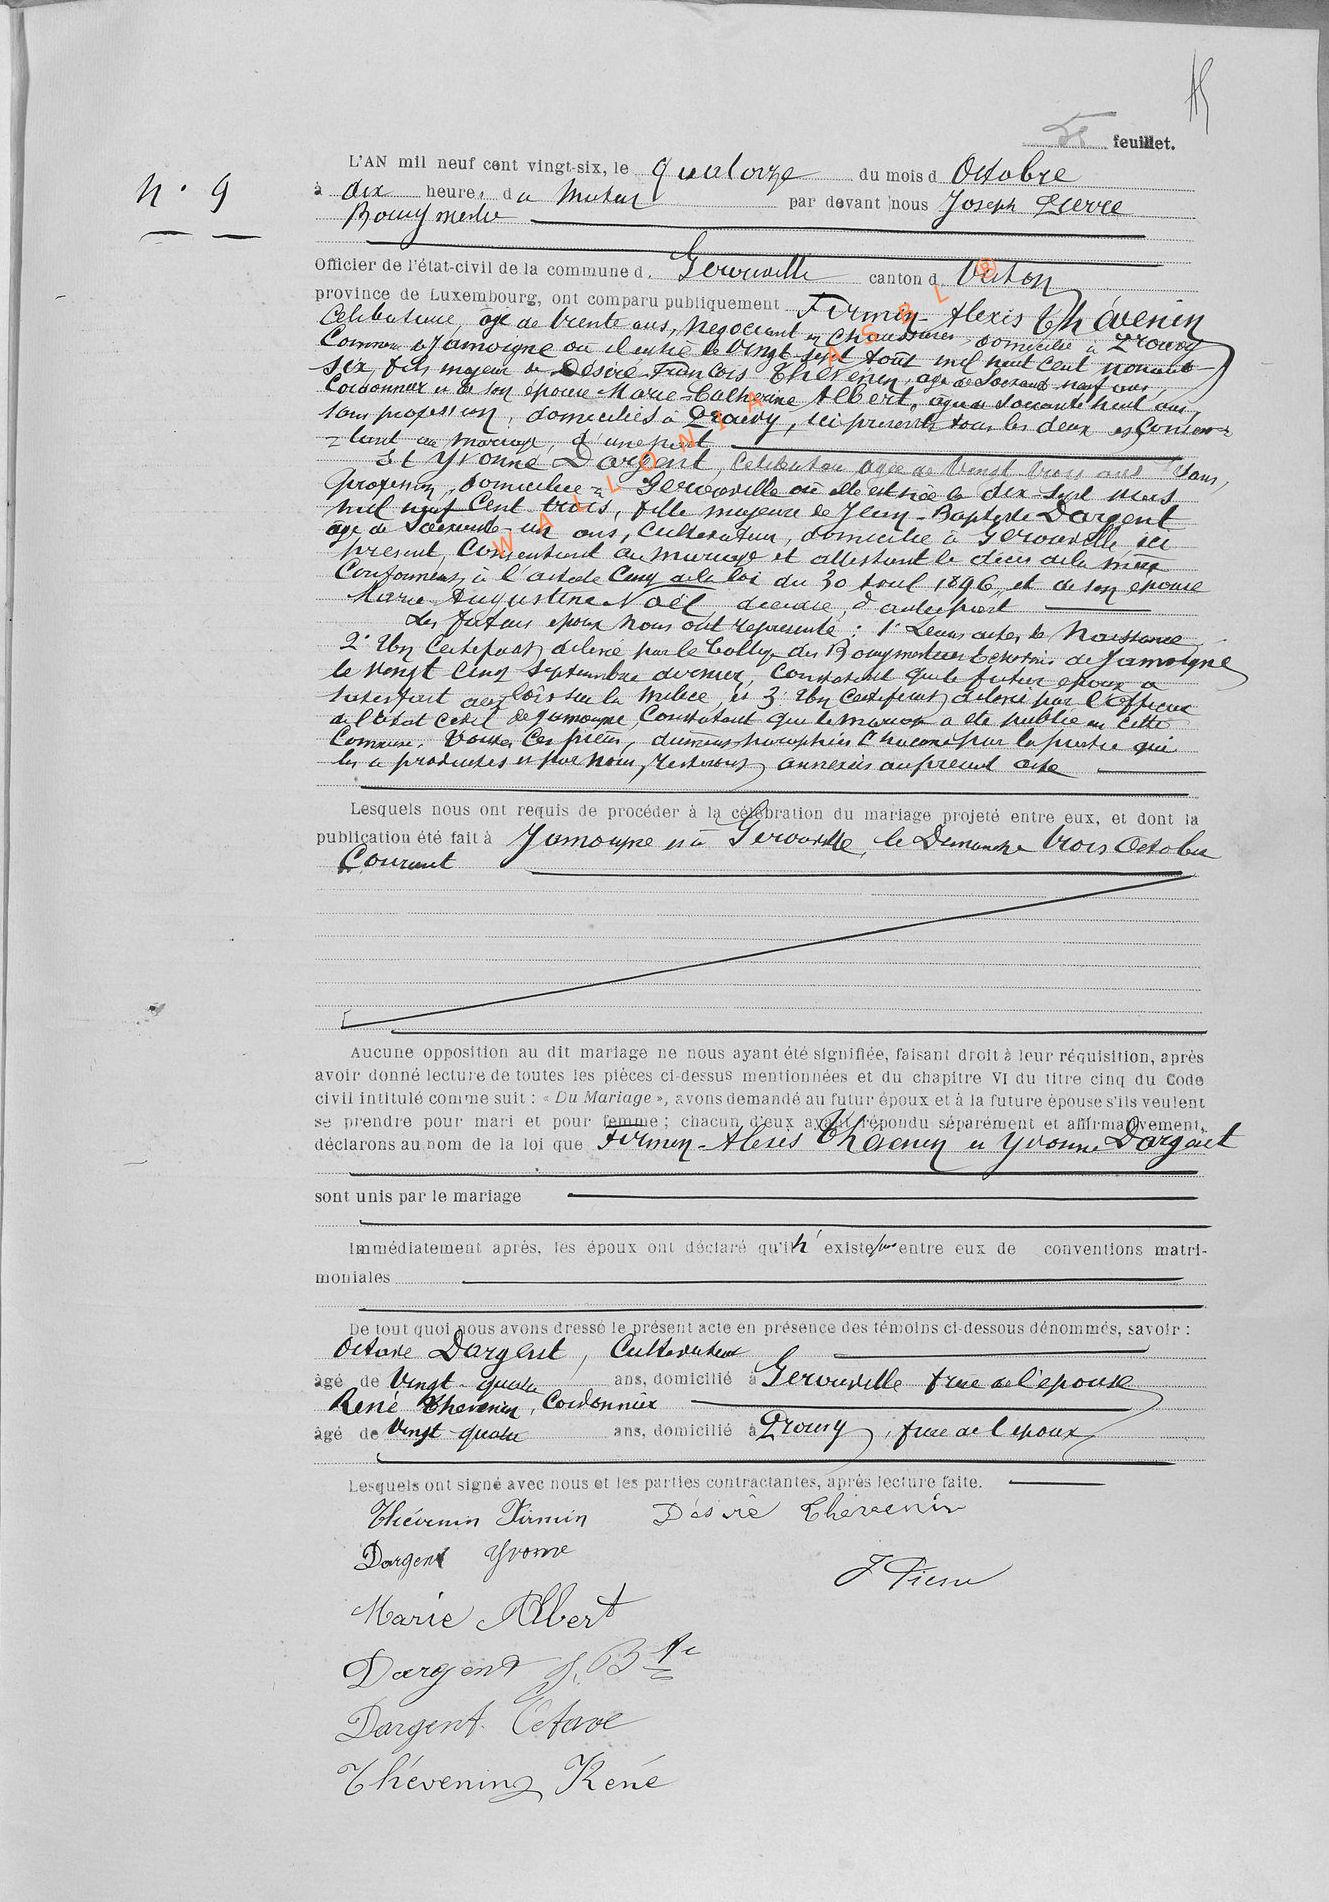 5e feuillet.
N° 9
L'AN mil neuf cent vingt-six, le quatorze du mois d Octobre
à dix heures du matin par devant nous Joseph Pierre
Bourgmestre
Officier de l'état-civil de la commune d. Gérouville canton d. Virton
province de Luxembourg, ont comparu publiquement Firmin-Alexis Thévenin
célibataire, âgé de trente ans, négociant en chaussures, domicilié à Prouvy
commune Jamoigne où il est né le vingt-sept août mil huit cent nonante
six, fils majeur de Désiré-François Thévenin, âgé de soixante neuf ans,
cordonnier et de son épouse Marie-Catherine Albert, âgée de soixante huit ans,
sans profession, domiciliés à Prouvy, ici présents tous les deux et consen-
tant au mariage, d'une part
Et Yvonne Dargent, célibataire âgée de vingt trois ans sans
profession, domiciliée à Gérouville où elle est née le dix-sept mars
mil neuf cent trois, fille majeure de Jean-Baptiste Dargent
âgé de soixante-un ans, cultivateur, domicilié à Gérouville, ici
présent, consentant au mariage et attestant le décès de la mère
conformément à l'article cinq de la loi du 30 Avril 1896, et de son épouse
Marie-Augustine Noël décédée, d'autre part
Les futurs époux nous ont représenté : 1° Leurs actes de naissance
2° Un certificat délivré par le Collège des Bourgmestre et Echevins de Jamoigne
le vingt cinq septembre dernier, constatant que le futur époux a
satisfait aux lois sur la milice, et 3° Un certificat délivré par l'officier
de l'état civil de Jamoigne, constatant que le mariage a été publié en cette
commune. Toutes ces pièces, dûment paraphées chacune par la partie qui
les a produites et par nous, resteront annexées au présent acte
Lesquels nous ont requis de procéder à la célébration du mariage projeté entre eux, et dont la
publication été fait à Jamoigne et à Gérouville, le Dimanche trois Octobre
courant
Aucune opposition au dit mariage ne nous ayant été signifiée, faisant droit à leur réquisition, après
avoir donné lecture de toutes les pièces ci-dessus mentionnées et du chapitre VI du titre cinq du Code
civil intitulé comme suit : « Du Mariage », avons demandé au futur époux et à la future épouse s'ils veulent
se prendre pour mari et pour femme ; chacun d'eux ayant répondu séparément et affirmativement,
déclarons au nom de la loi que Firmin-Alexis Thévenin et Yvonne Dargent
sont unis par le mariage
Immédiatement après, les époux ont déclaré qu'il n' existe pas entre eux de conventions matri-
moniales
De tout quoi nous avons dressé le présent acte en présence des témoins ci-dessous dénommés, savoir :
Octave Dargent, Cultivateur
âgé de vingt-quatre ans, domicilié à Gérouville frère de l'épouse
René Thévenin, Cordonnier
âgé de vingt-quatre ans, domicilié à Prouvy, frère de l'époux
Lesquels ont signé avec nous et les parties contractantes, après lecture faite.
Thévenin Firmin Désiré Thévenin
Dargent Yvonne
J Pierre
Marie Albert
Dargent J. Bte
Dargent Octave
Thévenin René
WALLONIA ASBL ®